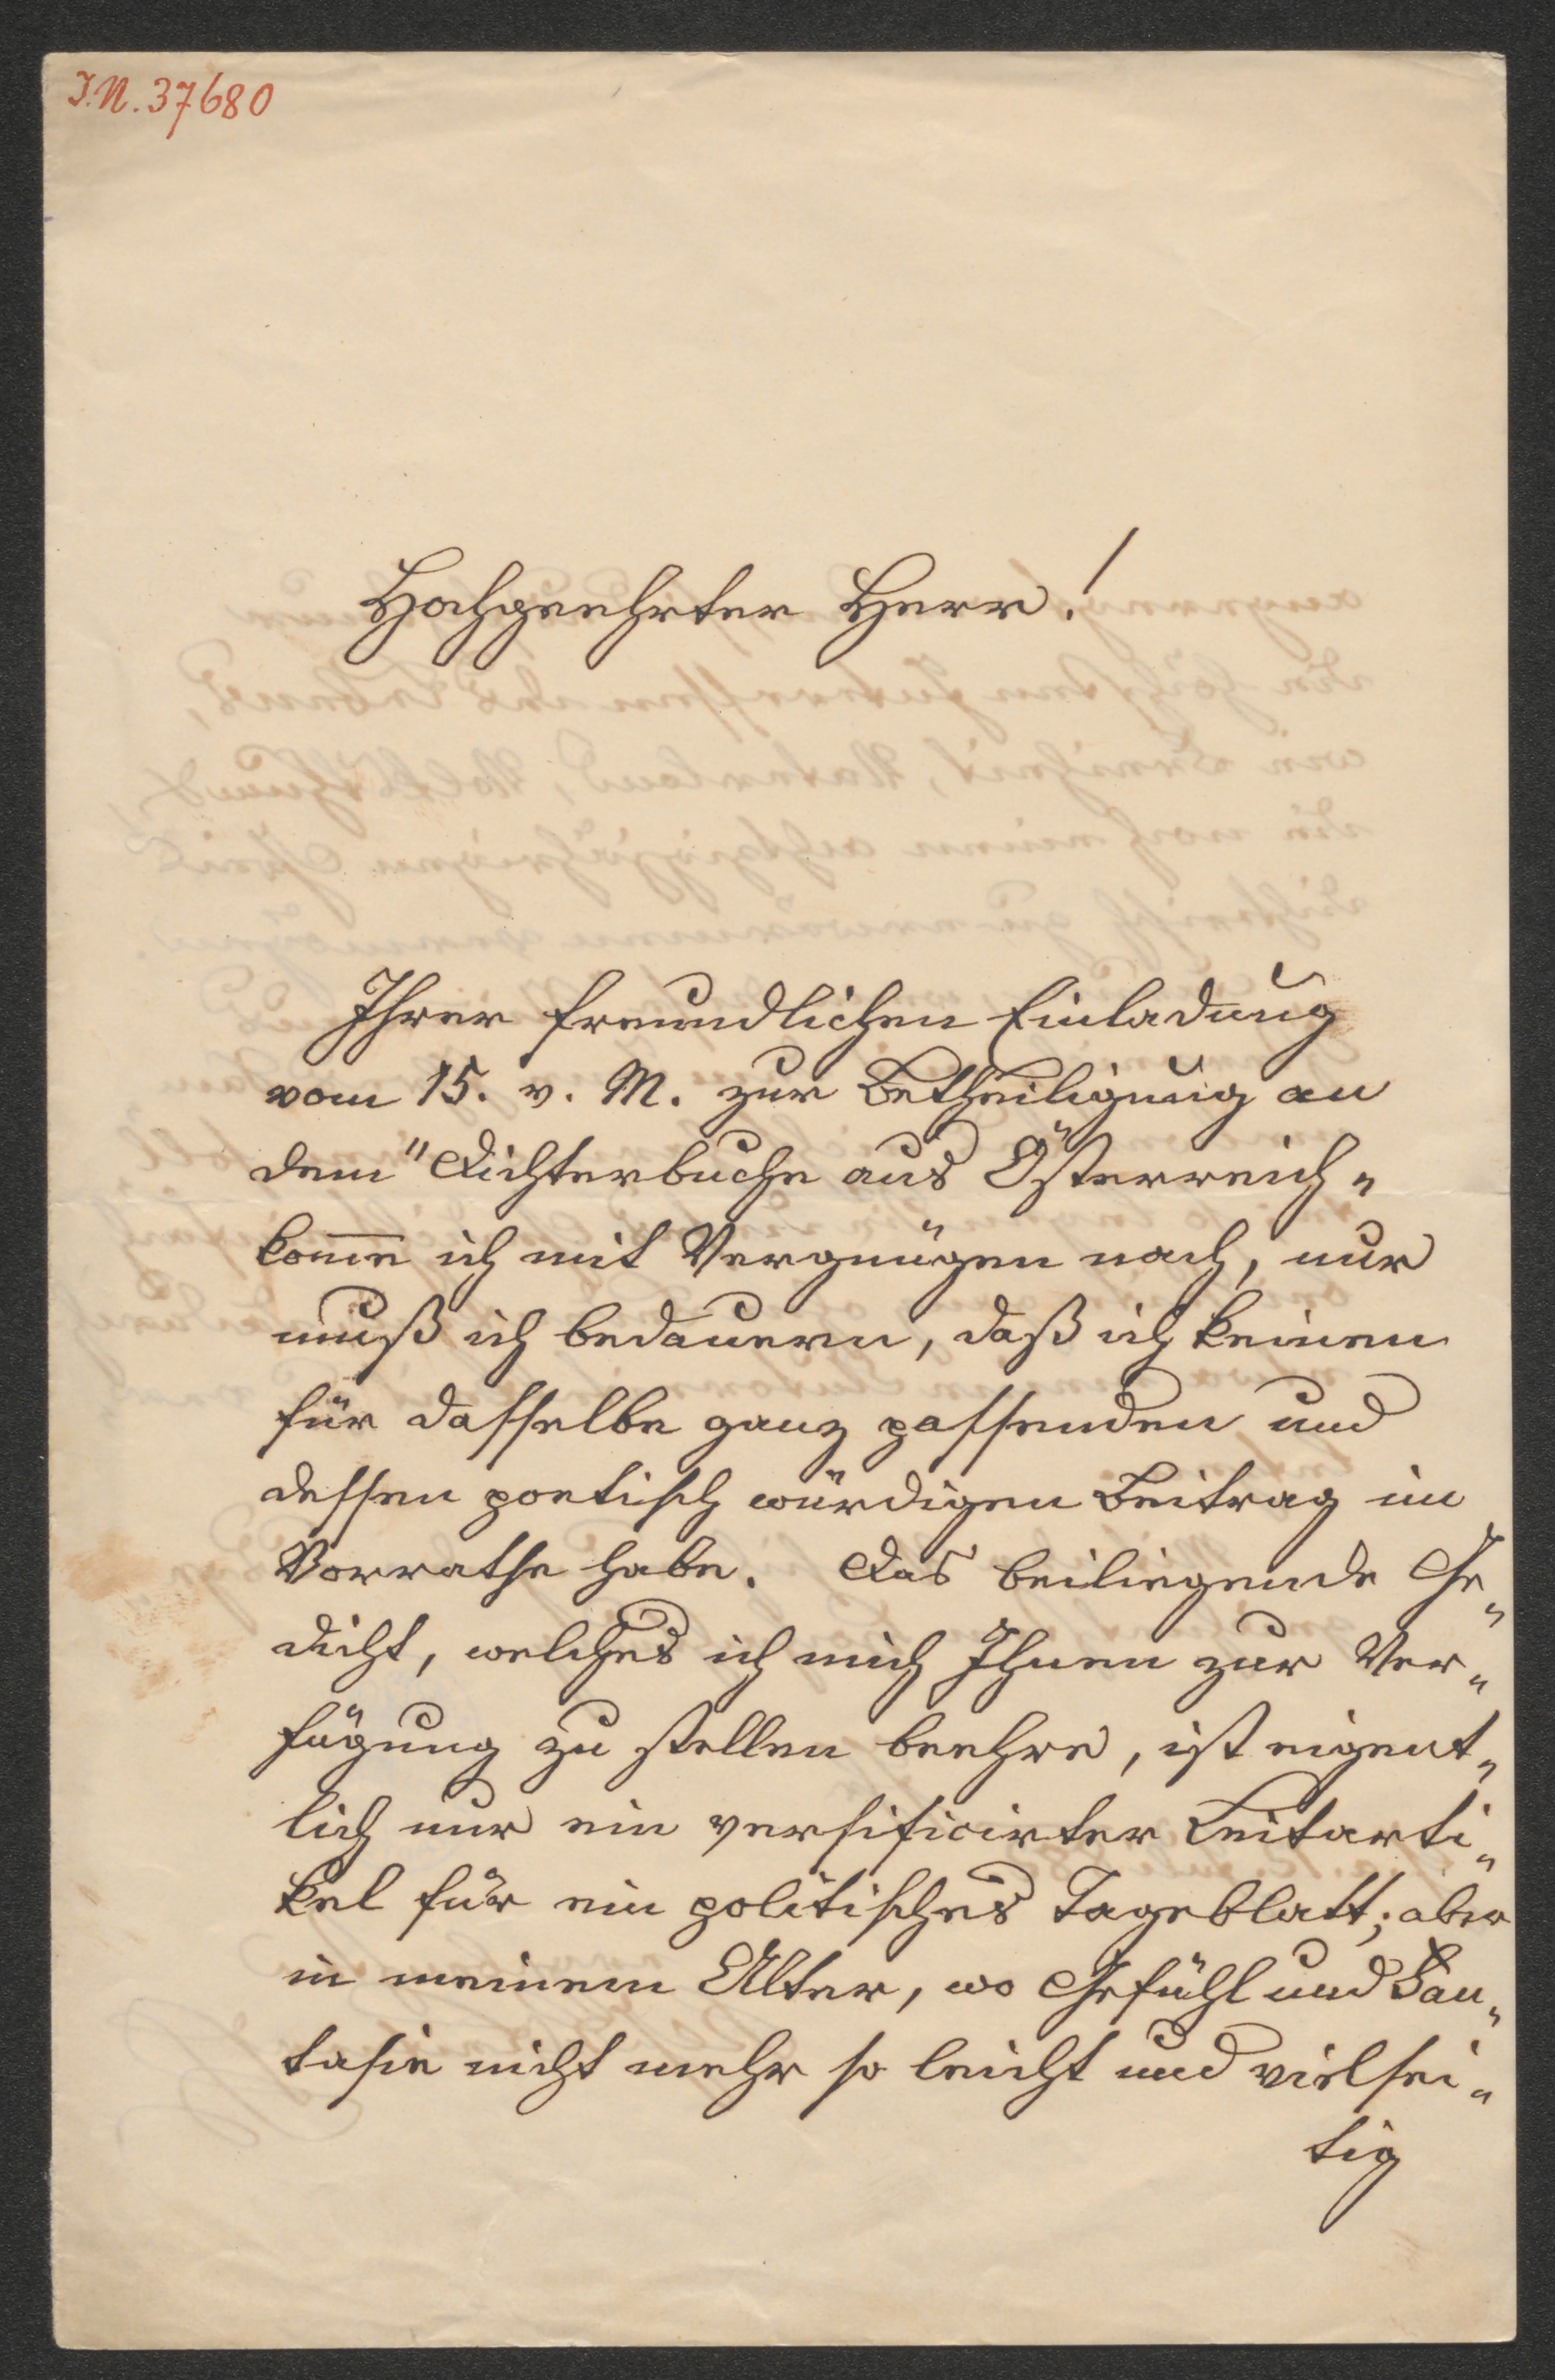 I.N. 37680
Hochgeehrter Herr!
Ihrer freundlichen Einladung
vom 15. v. M. zur Betheiligung an
dem "Dichterbuche aus Österreich"
kom̅e ich mit Vergnügen nach, nur
muß ich bedauern, daß ich keinen
für dasselbe ganz passenden und
dessen poetisch würdigen Beitrag im
Vorrathe habe. Das beiliegende Ge„
dicht, welches ich mich Ihnen zur Ver„
fügung zu stellen beehre, ist eigent„
lich nur ein versificirter Leitarti„
kel für ein politisches Tageblatt; aber
in meinem Alter, wo Gefühl und Fan„
tasie nicht mehr so leicht und vielsei„
tig